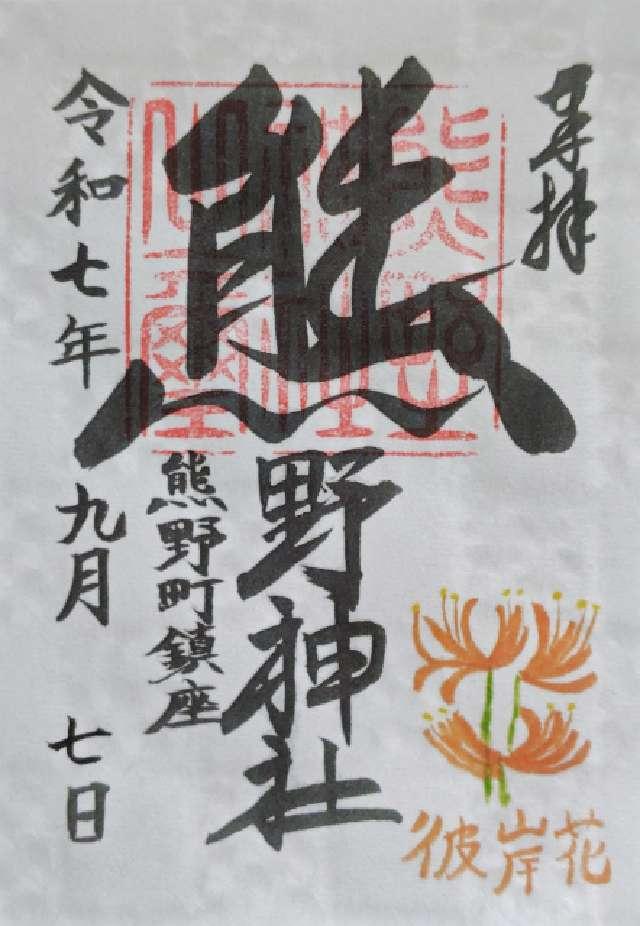 奉拝
熊野神社
熊野町鎮座
令和七年 九月 七日
彼岸花